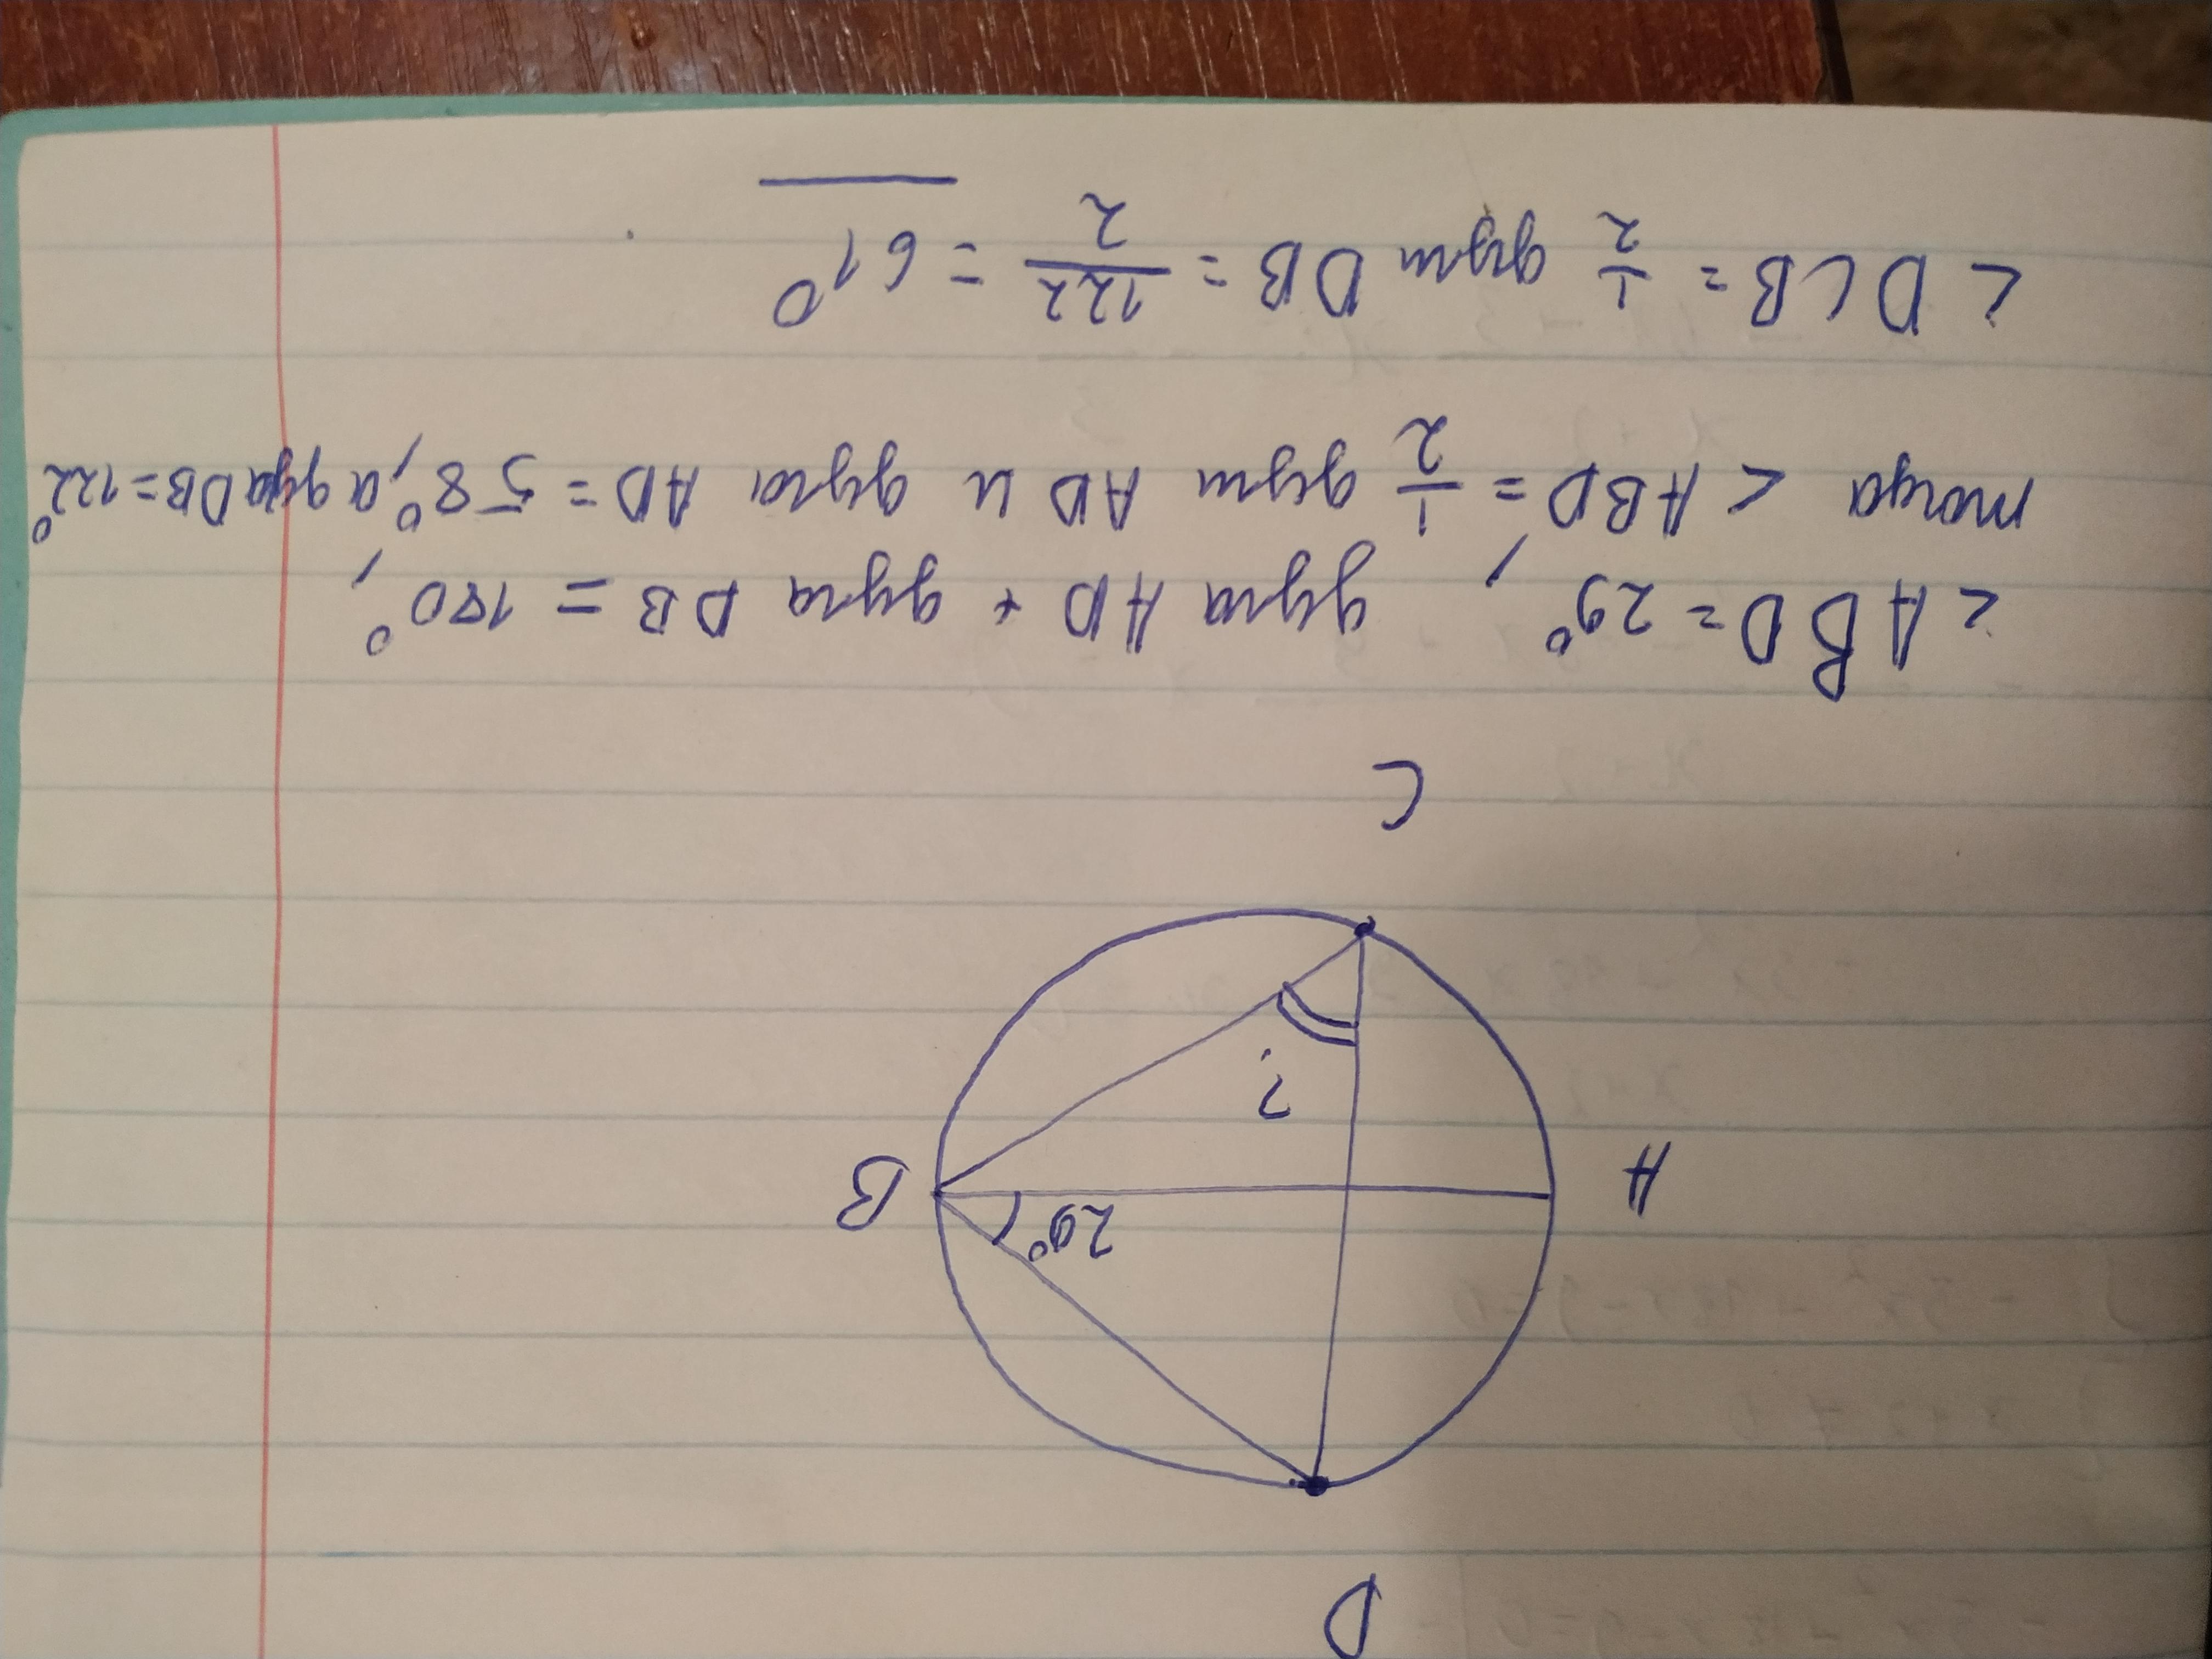 D
A
29°
B
?
C
<ABD=29°, дуга AD + дуга DB = 180°,
тогда <ABD = 1/2 дуги AD и дуга AD = 58°, а дуга DB=122°
<DCB = 1/2 дуги DB = 122/2 = 61°